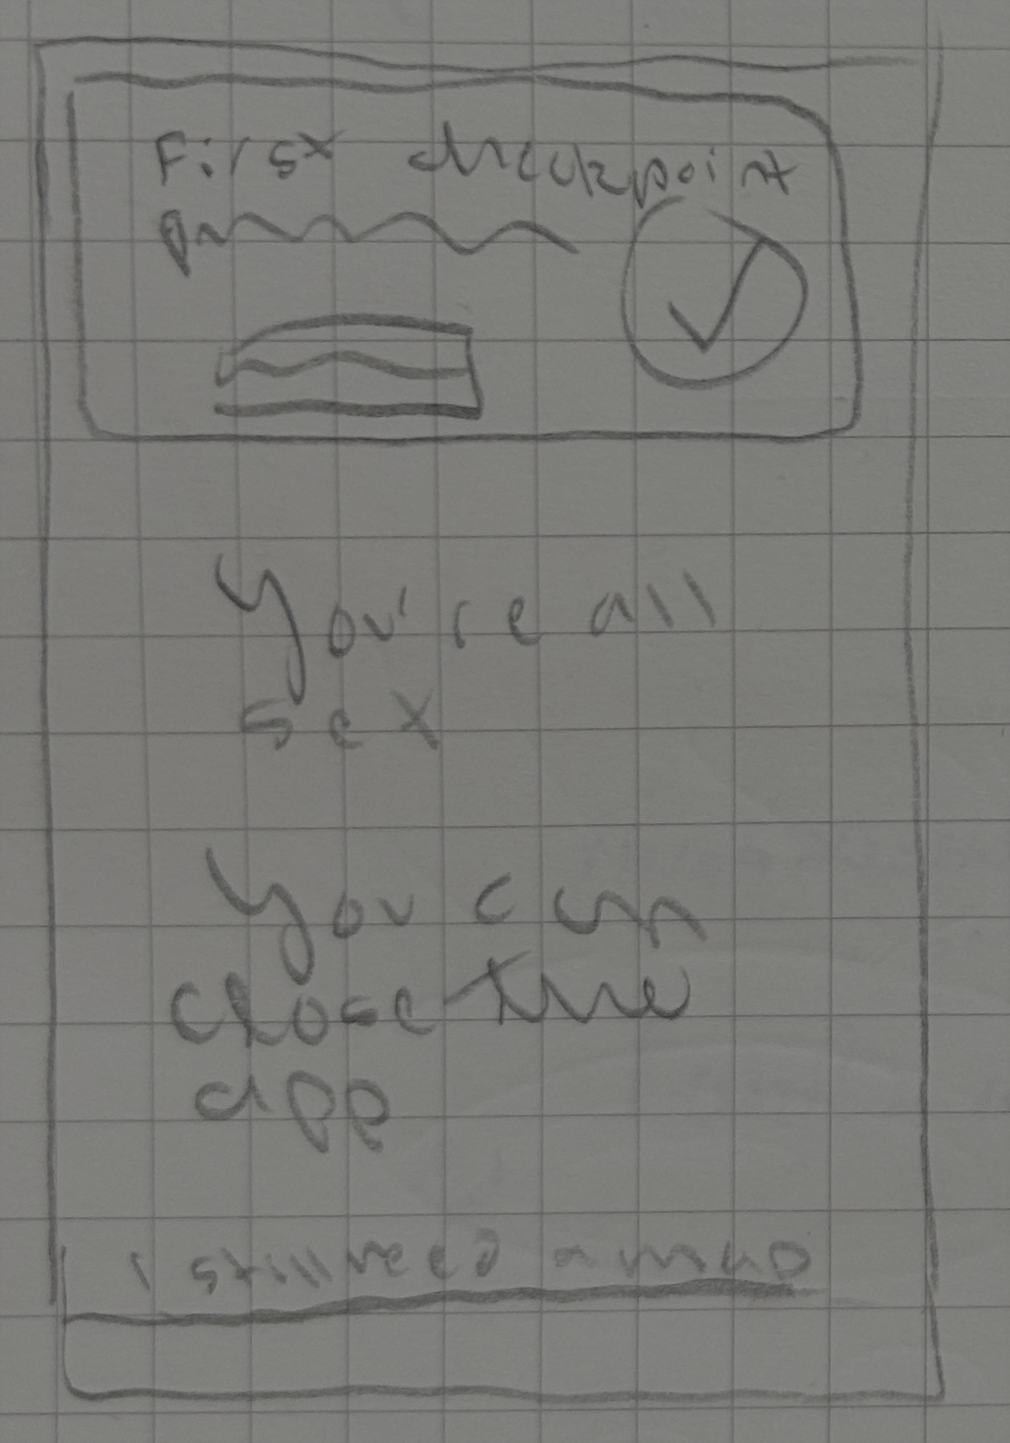 First checkpoint
You're all
set
You can
close the
app
I still need a map